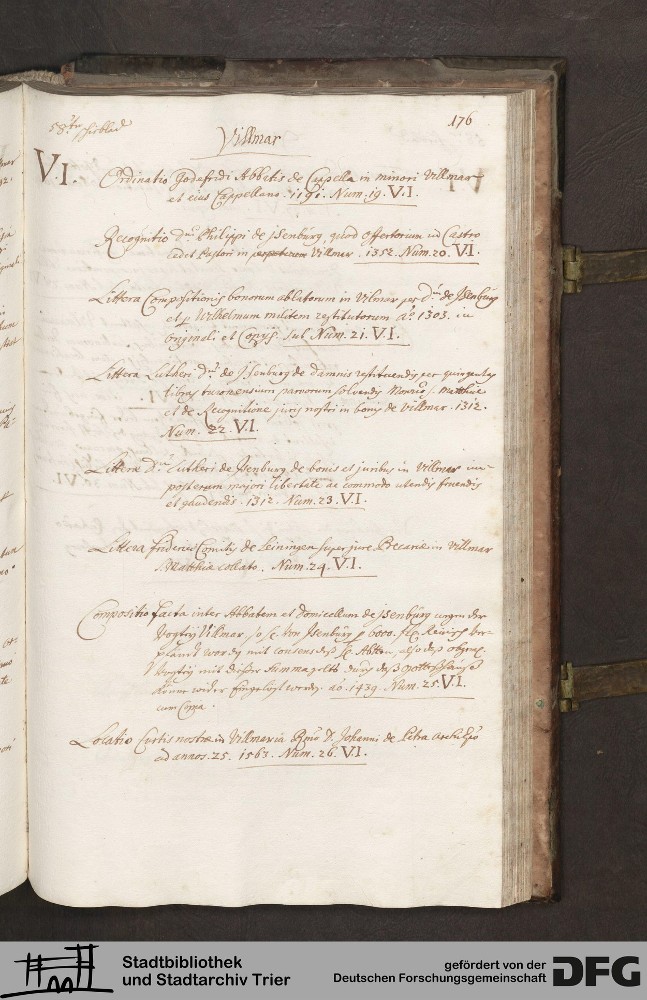 176
Villmar
V.I.
Ordinatio Godefridi Abbatis de Cappella in minori Villmar
et eius Cappellano. 1191. Num. 19. V.I.
Recognitio d.ni Philippi de jsenburg, quod offertorium in Castro
cedet Pastori in Villmar. 1352. Num. 20. V.I.
Littera Compositionis bonorum ablatorum in Vilmar per d.um de Jsenburg
et p Wilhelmum militem restitutorum aͦ. 1303. in
originali et Copijs. sub Num. 21. V.I.
Littera Lutheri d.ni de Jsenburg de damnis restituendis per quingentas
libras turonensium parvorum solvendis Monrio S. Matthiae
et de Recognitione juris nostri in bonis de Villmar. 1312.
Num. 22 V.I.
Litterae d.ni Lutheri de Jsenburg de bonis et juribus in Villmar im-
posterum majori libertate ac commodo utendis fruendis
et gaudendis. 1312. Num. 23. V.I.
Littera friderici Comitis de Leiningen super jure Precariae in Villmar
S. Matthiae collato. Num. 24. V.I.
Compositio facta inter Abbatem et Domicellum de jsenburg wegen der
Vogtey Villmar, so von Jsenburg p 6000. flr.
worden mit consens deß
Vogtey mit dieser Summa gelts durch deß gotteßhauß
worden. aͦ. 1439. Num. 25. V.I.
cum Copia.
Locatio Curtis nostrae in Villmaria Rmo D. Johanni de Petra Archi Epo
ad annos. 25. 1563. Num. 26. V.I.
Stadtbibliothek
und Stadtarchiv Trier
gefördert von der
Deutschen Forschungsgemeinschaft
DFG